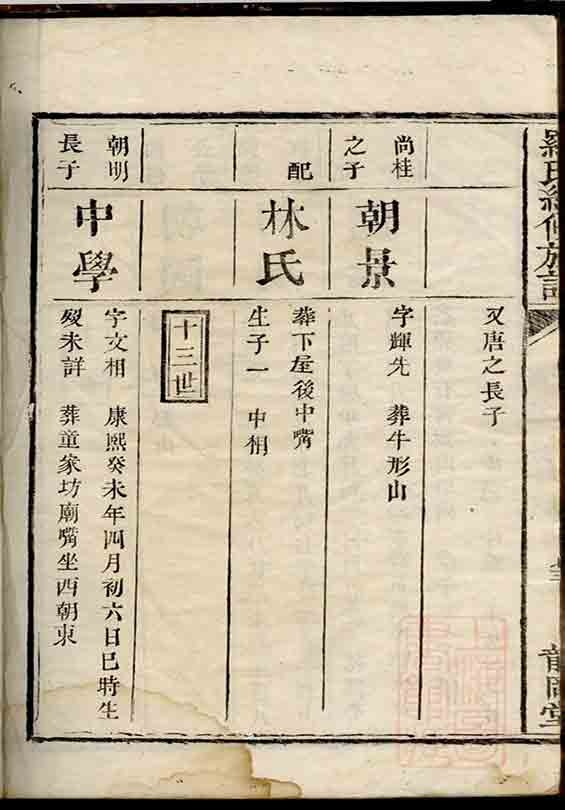 羅氏續修族譜
龍岡堂
又唐之長子
尚桂
之子
朝景
字輝先 葬牛形山
配
林氏
葬下屋後中嘴
生子一 中相
十三世
朝明
長子
中學
字文相 康熙癸未年四月初六日巳時生
歿未詳 葬童家坊廟嘴坐西朝東